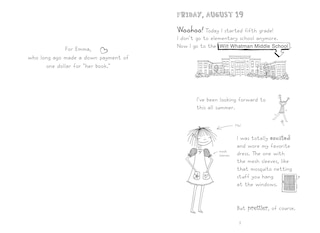 For Emma,
who long ago made a down payment of
one dollar for "her book."
FRIDAY, AUGUST 19
Woohoo! Today I started fifth grade!
I don't go to elementary school anymore.
Now I go to the Will Whalman Middle School.
I've been looking forward to
this all summer.
I was totally excited
and wore my favorite
dress. The one with
the mesh sleeves, like
that mosquito netting
stuff you hang
at the windows.
But prettier, of course.